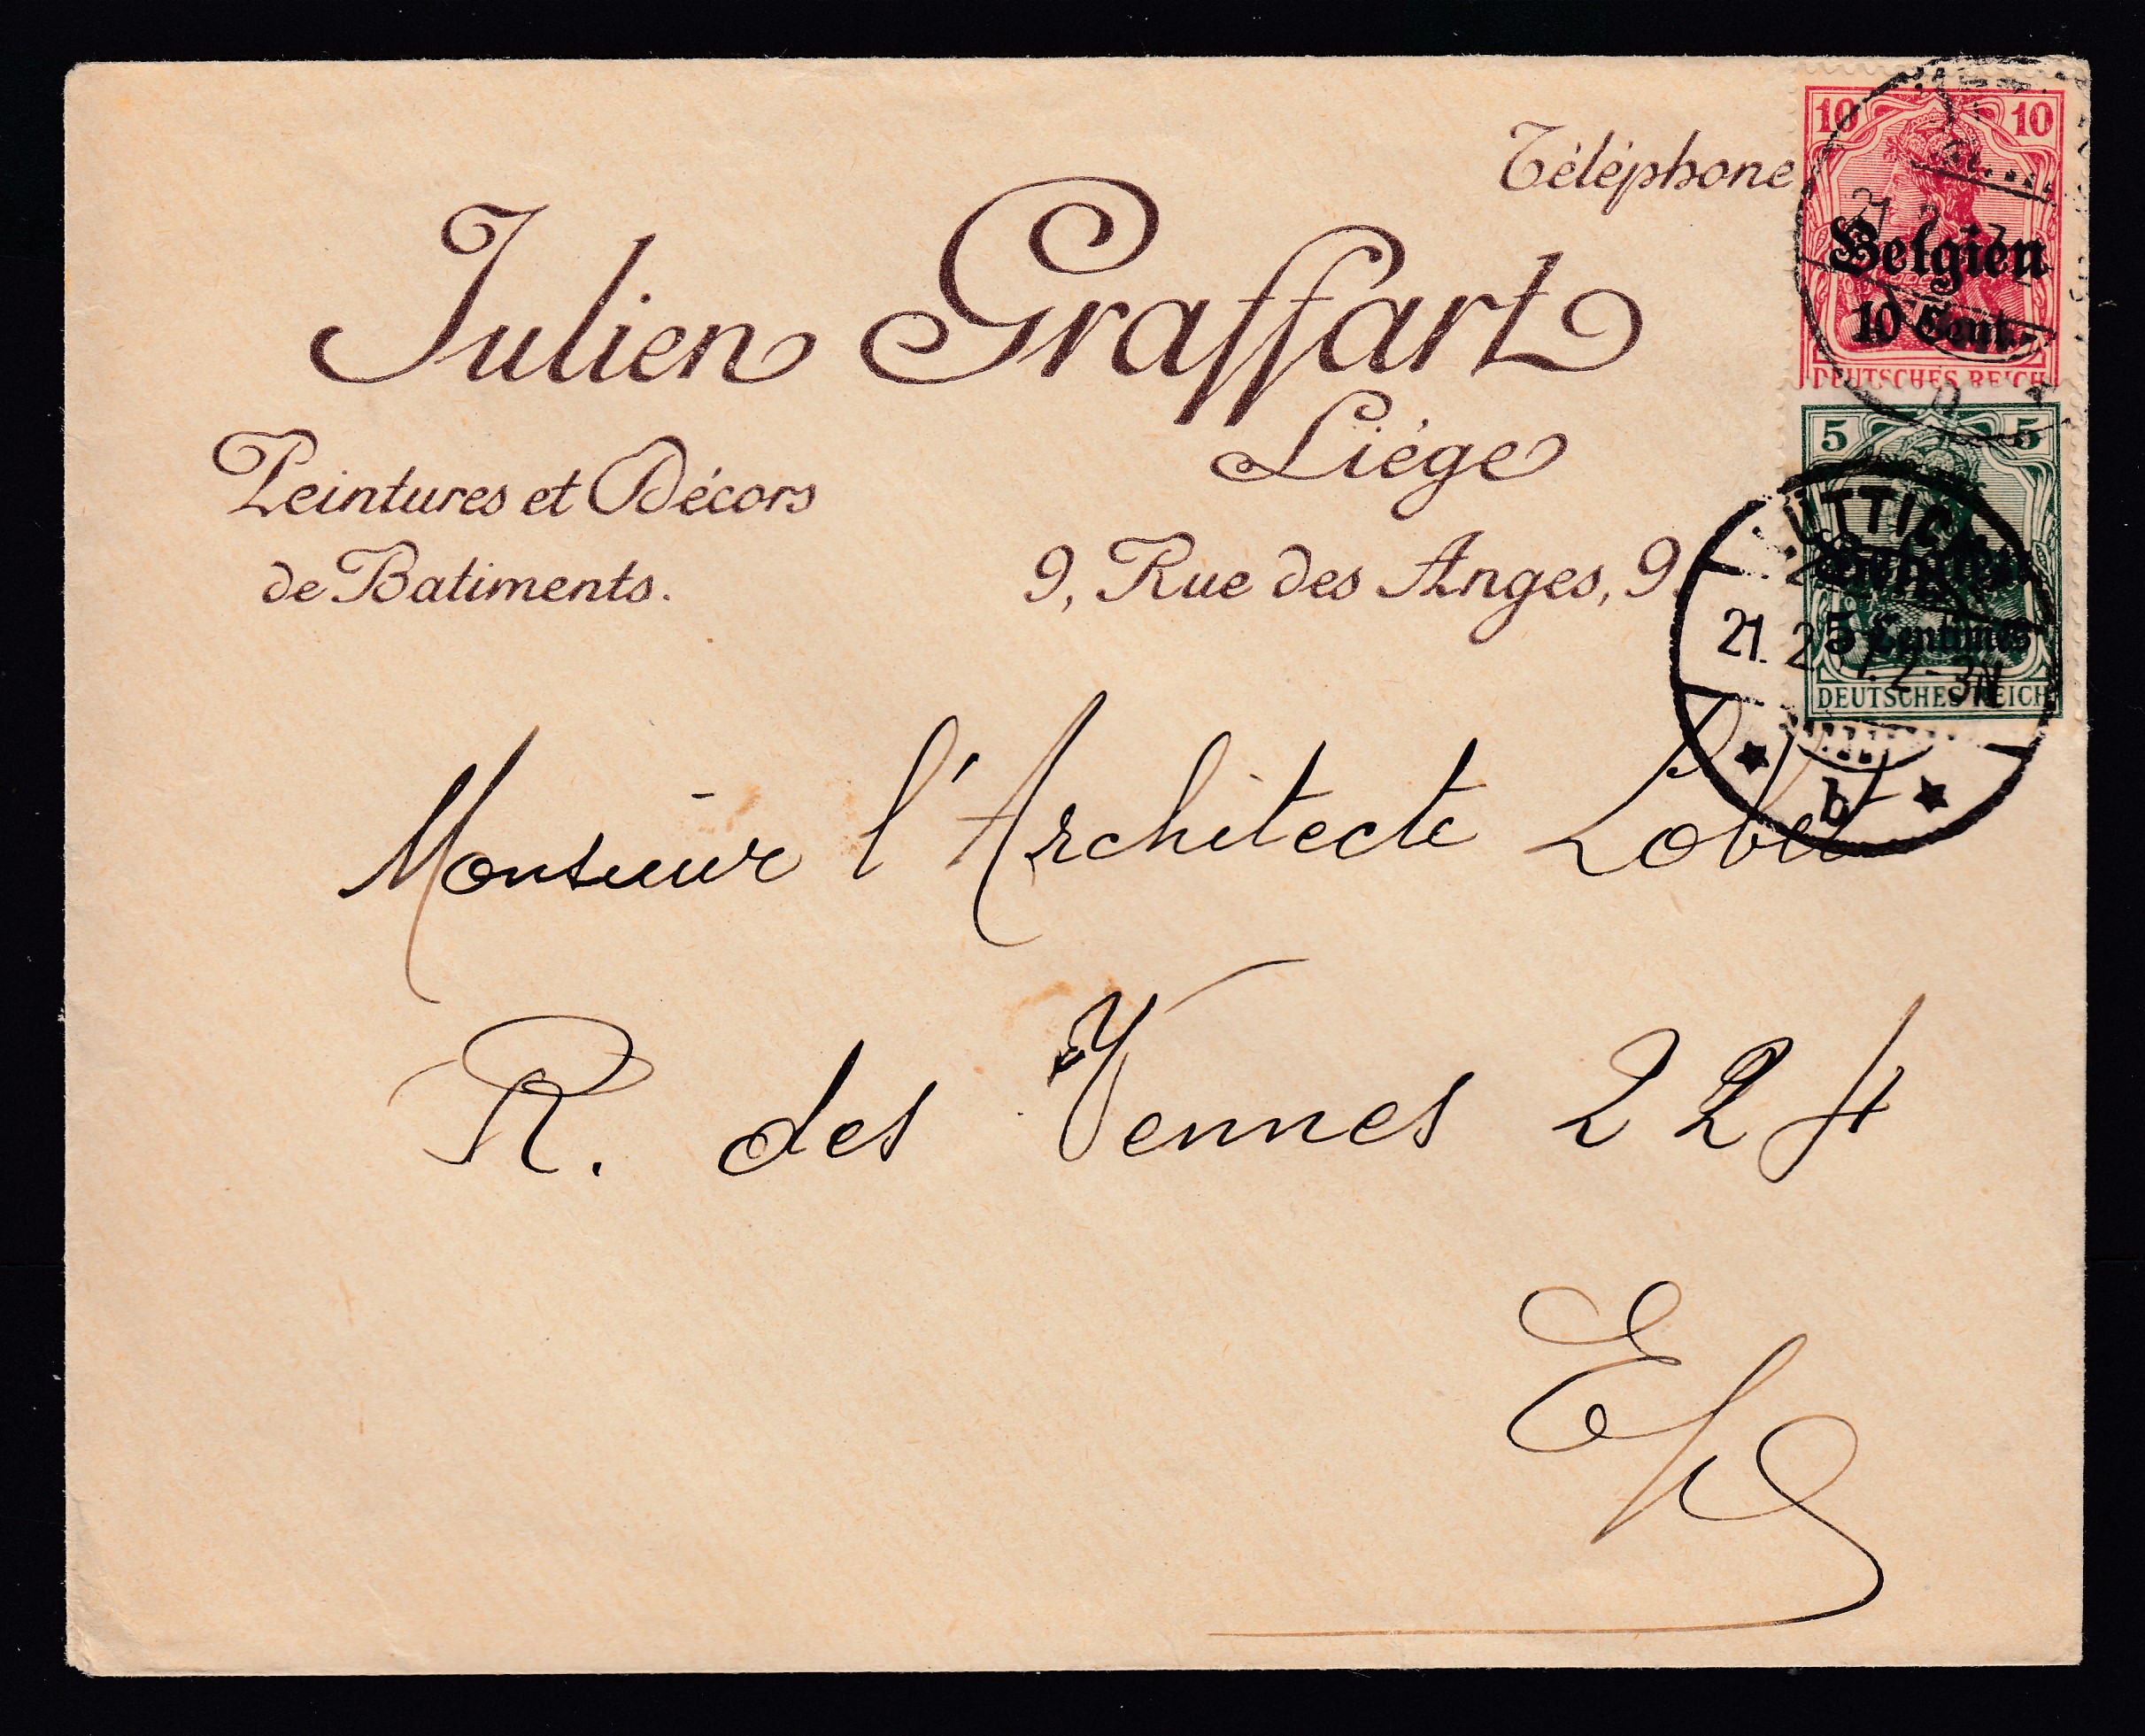 Téléphone
Julien Graffart
Liége
Peintures et Décors
de Batiments.
9, Rue des Anges, 9.
10 10
Belgien
10 Cent.
DEUTSCHES REICH
5 5
5 Centimes
DEUTSCHES REICH
LÜTTICH
21. 2 7. 2-3N
b
Monsieur l'Architecte Lobet
R. des Vennes 224
E/V